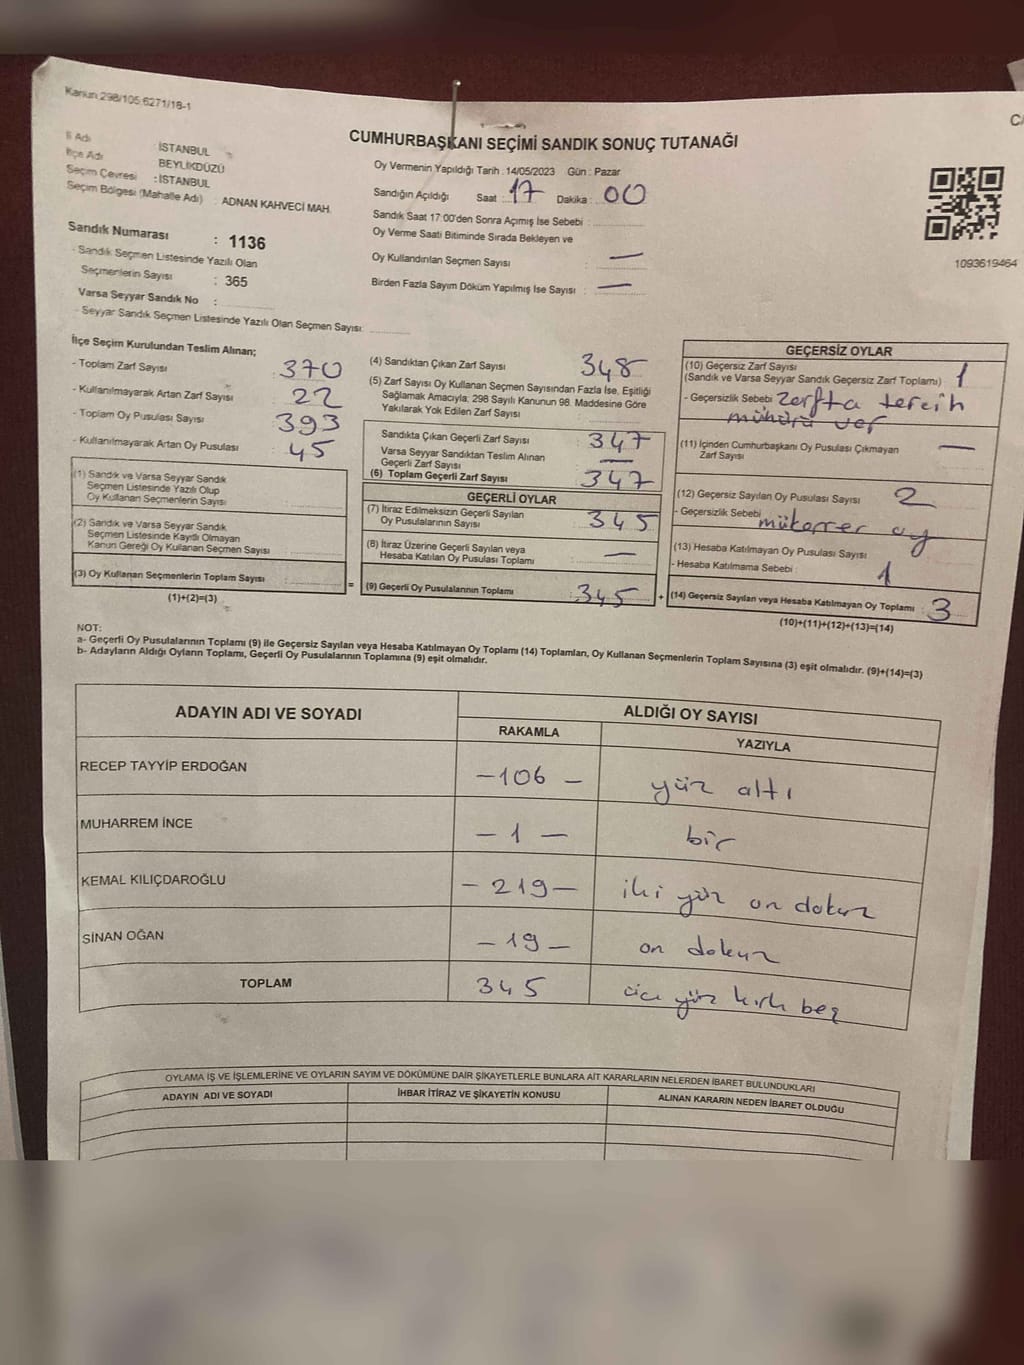 Kanun:298/105,6271/18-1
CUMHURBAŞKANI SEÇİMİ SANDIK SONUÇ TUTANAĞI
İl Adı : İSTANBUL
İlçe Adı BEYLİKDÜZÜ
Seçim Çevresi : İSTANBUL
Seçim Bölgesi (Mahalle Adı) : ADNAN KAHVECİ MAH.
Sandık Numarası : 1136
- Sandık Seçmen Listesinde Yazılı Olan
Seçmenlerin Sayısı : 365
Varsa Seyyar Sandık No :
- Seyyar Sandık Seçmen Listesinde Yazılı Olan Seçmen Sayısı:
Oy Vermenin Yapıldığı Tarih : 14/05/2023 Gün : Pazar
Sandığın Açıldığı Saat 17 Dakika : 00
Sandık Saat 17:00'den Sonra Açımış İse Sebebi :
Oy Verme Saati Bitiminde Sırada Bekleyen ve
Oy Kullandırılan Seçmen Sayısı : —
Birden Fazla Sayım Döküm Yapılmış İse Sayısı : —
1093619464
İlçe Seçim Kurulundan Teslim Alınan;
- Toplam Zarf Sayısı : 370
- Kullanılmayarak Artan Zarf Sayısı : 22
- Toplam Oy Pusulası Sayısı : 393
- Kullanılmayarak Artan Oy Pusulası : 45
(1) Sandık ve Varsa Seyyar Sandık
Seçmen Listesinde Yazılı Olup
Oy Kullanan Seçmenlerin Sayısı :
(2) Sandık ve Varsa Seyyar Sandık
Seçmen Listesinde Kayıtlı Olmayan
Kanun Gereği Oy Kullanan Seçmen Sayısı :
(3) Oy Kullanan Seçmenlerin Toplam Sayısı :
(1)+(2)=(3)
(4) Sandıktan Çıkan Zarf Sayısı : 348
(5) Zarf Sayısı Oy Kullanan Seçmen Sayısından Fazla İse, Eşitliği
Sağlamak Amacıyla; 298 Sayılı Kanunun 98. Maddesine Göre
Yakılarak Yok Edilen Zarf Sayısı :
Sandıkta Çıkan Geçerli Zarf Sayısı : 347
Varsa Seyyar Sandıktan Teslim Alınan
Geçerli Zarf Sayısı : —
(6) Toplam Geçerli Zarf Sayısı : 347
GEÇERLİ OYLAR
(7) İtiraz Edilmeksizin Geçerli Sayılan
Oy Pusulalarının Sayısı : 345
(8) İtiraz Üzerine Geçerli Sayılan veya
Hesaba Katılan Oy Pusulası Toplamı : —
= (9) Geçerli Oy Pusulalarının Toplamı : 345 +
GEÇERSİZ OYLAR
(10) Geçersiz Zarf Sayısı
(Sandık ve Varsa Seyyar Sandık Geçersiz Zarf Toplamı) : 1
- Geçersizlik Sebebi : zarfta tercih
mühürü var
(11) İçinden Cumhurbaşkanı Oy Pusulası Çıkmayan
Zarf Sayısı : —
(12) Geçersiz Sayılan Oy Pusulası Sayısı : 2
- Geçersizlik Sebebi mükerrer oy
(13) Hesaba Katılmayan Oy Pusulası Sayısı :
- Hesaba Katılmama Sebebi : 1
(14) Geçersiz Sayılan veya Hesaba Katılmayan Oy Toplamı : 3
(10)+(11)+(12)+(13)=(14)
NOT:
a- Geçerli Oy Pusulalarının Toplamı (9) ile Geçersiz Sayılan veya Hesaba Katılmayan Oy Toplamı (14) Toplamları, Oy Kullanan Seçmenlerin Toplam Sayısına (3) eşit olmalıdır. (9)+(14)=(3)
b- Adayların Aldığı Oyların Toplamı, Geçerli Oy Pusulalarının Toplamına (9) eşit olmalıdır.
ADAYIN ADI VE SOYADI ALDIĞI OY SAYISI
RAKAMLA YAZIYLA
RECEP TAYYİP ERDOĞAN -106- yüz altı
MUHARREM İNCE -1- bir
KEMAL KILIÇDAROĞLU -219- iki yüz on dokuz
SİNAN OĞAN -19- on dokuz
TOPLAM 345 yüz kırk beş
OYLAMA İŞ VE İŞLEMLERİNE VE OYLARIN SAYIM VE DÖKÜMÜNE DAİR ŞİKAYETLERLE BUNLARA AİT KARARLARIN NELERDEN İBARET BULUNDUKLARI
ADAYIN ADI VE SOYADI İHBAR İTİRAZ VE ŞİKAYETİN KONUSU ALINAN KARARIN NEDEN İBARET OLDUĞU